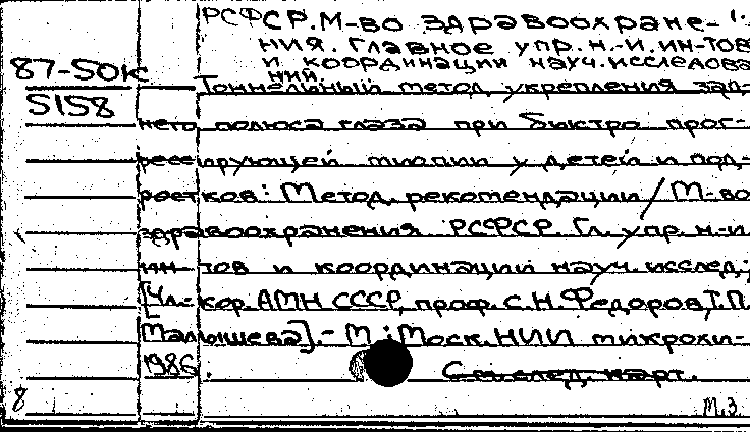 РСФСР. М-во здравоохране-
ния. Главное упр. н.-и. ин-тов
и координации науч. исследова
ний.
87-50К
5158
Тоннельный метод укрепления зад-
него полюса глаза при быстро прог-
рессирующей миопии у детей и под-
ростков: Метод. рекомендации / М-во
здравоохранения РСФСР. Гл. упр. н.-и.
ин-тов и координации науч. исслед.;
[Чл.-кор. АМН СССР, проф. С.Н. Федоров, Т.П.
Малышева]. - М.: Моск. НИИ микрохи-
1986.
См. след. карт.
8
М.З